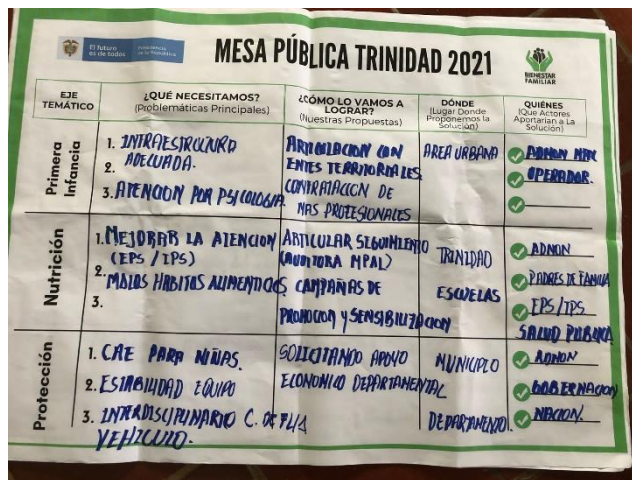 El futuro es de todos
Presidencia de la República
MESA PÚBLICA TRINIDAD 2021
BIENESTAR FAMILIAR
EJE TEMÁTICO
¿QUÉ NECESITAMOS?
(Problemáticas Principales)
¿CÓMO LO VAMOS A LOGRAR?
(Nuestras Propuestas)
DÓNDE
(Lugar Donde Proponemos la Solución)
QUIÉNES
(Qué Actores Aportarían a La Solución)
Primera Infancia
1. INTRAESTRUCTURA
ADECUADA.
2.
3. ATENCION POR PSICOLOGIA
ARTICULACION CON
ENTES TERRITORIALES
CONTRATACION DE
MAS PROFESIONALES
AREA URBANA
ADMON MPAL
OPERADOR.
Nutrición
1. MEJORAR LA ATENCION
(EPS / IPS)
2. MALOS HABITOS ALIMENTICIOS
3.
ARTICULAR SEGUIMIENTO
(AUDITORA MPAL)
CAMPAÑAS DE
PROMOCION Y SENSIBILIZACION
TRINIDAD
ESCUELAS
ADMON
PADRES DE FAMILIA
EPS/IPS
SALUD PUBLICA
Protección
1. CAE PARA NIÑAS.
2. ESTABILIDAD EQUIPO
3. INTERDISCIPLINARIO C. DE FLIA
VEHICULO.
SOLICITANDO APOYO
ECONOMICO DEPARTAMENTAL
MUNICIPIO
DEPARTAMENTO.
ADMON
GOBERNACION
NACION.